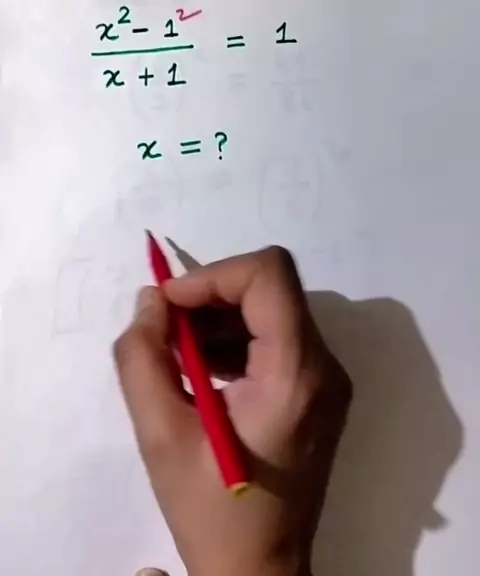 x² - 1² / x + 1 = 1
x = ?